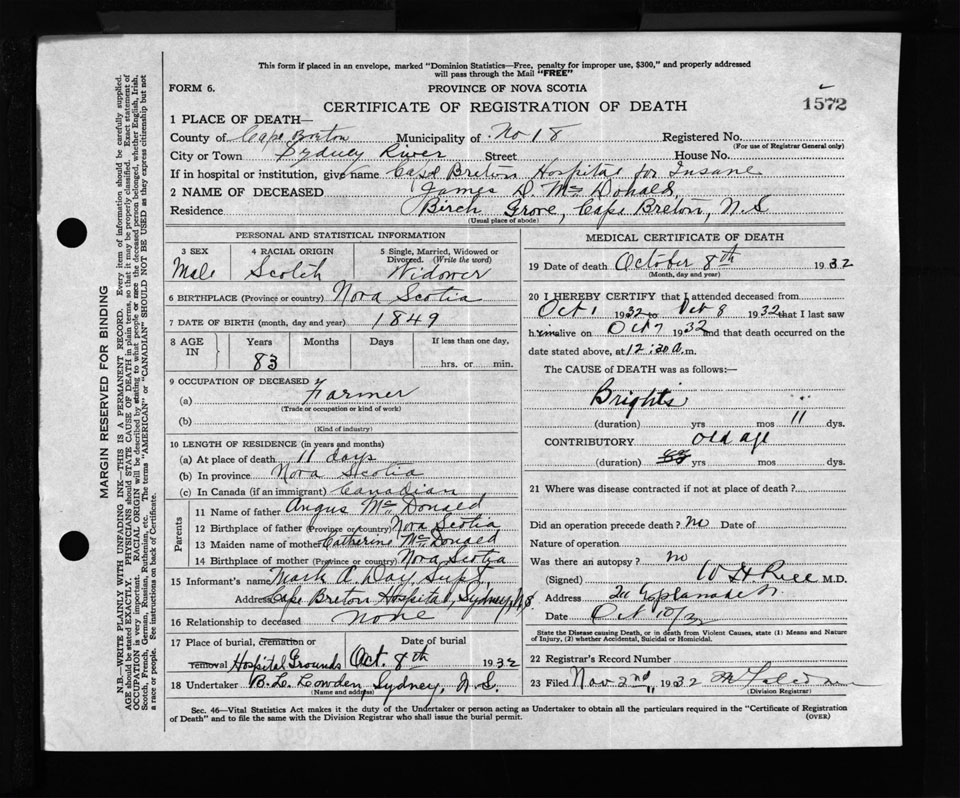 This form if placed in an envelope, marked "Dominion Statistics—Free, penalty for improper use, $300," and properly addressed
will pass through the Mail "FREE"
FORM 6.
PROVINCE OF NOVA SCOTIA
CERTIFICATE OF REGISTRATION OF DEATH
1572
1 PLACE OF DEATH—
County of Cape Breton Municipality of No 18 Registered No.
(For use of Registrar General only)
City or Town Sydney River Street House No.
If in hospital or institution, give name Cape Breton Hospital for Insane
2 NAME OF DECEASED James D. Mc Donald
Residence Birch Grove, Cape Breton, N.S
(Usual place of abode)
PERSONAL AND STATISTICAL INFORMATION
3 SEX 4 RACIAL ORIGIN 5 Single, Married, Widowed or
Divorced. (Write the word)
Male Scotch Widower
6 BIRTHPLACE (Province or country) Nova Scotia
7 DATE OF BIRTH (month, day and year) 1849
8 AGE IN Years Months Days If less than one day,
83 hrs. or min.
9 OCCUPATION OF DECEASED
(a) Farmer
(Trade or occupation or kind of work)
(b)
(Kind of industry)
10 LENGTH OF RESIDENCE (in years and months)
(a) At place of death 11 days
(b) In province Nova Scotia
(c) In Canada (if an immigrant) Canadian
Parents
11 Name of father Angus Mc Donald
12 Birthplace of father (Province or country) Nova Scotia
13 Maiden name of mother Catherine Mc Donald
14 Birthplace of mother (Province or country) Nova Scotia
15 Informant's name Mark A. Day, Supt,
Address Cape Breton Hospital, Sydney, N.S.
16 Relationship to deceased None
17 Place of burial, cremation or Date of burial
removal Hospital Grounds Oct. 8th 1932
18 Undertaker B. L. Lowden Sydney, N.S.
(Name and address)
MEDICAL CERTIFICATE OF DEATH
19 Date of death October 8th 1932
(Month, day and year)
20 I HEREBY CERTIFY that I attended deceased from
Oct 1 1932 to Oct 8 1932 that I last saw
h im alive on Oct 7 1932 and that death occurred on
date stated above, at 12:30 a.m.
The CAUSE of DEATH was as follows:—
Brights
(duration) yrs mos 11 dys.
CONTRIBUTORY old age
(duration) yrs mos dys.
21 Where was disease contracted if not at place of death?
Did an operation precede death? no Date of
Nature of operation
Was there an autopsy? no
(Signed) W H Rice M.D.
Address Esplanade St.
Date Oct 10/32
State the Disease causing Death, or in death from Violent Causes, state (1) Means and Nature
of Injury, (2) whether Accidental, Suicidal or Homicidal.
22 Registrar's Record Number
23 Filed Nov 2nd 1932
(Division Registrar)
Sec. 46—Vital Statistics Act makes it the duty of the Undertaker or person acting as Undertaker to obtain all the particulars required in the "Certificate of Registration
of Death" and to file the same with the Division Registrar who shall issue the burial permit.
(OVER)
MARGIN RESERVED FOR BINDING
N.B.—WRITE PLAINLY WITH UNFADING INK—THIS IS A PERMANENT RECORD. Every item of information should be carefully supplied.
AGE should be stated EXACTLY. PHYSICIANS should STATE CAUSE OF DEATH in plain terms, so that it may be properly classified. Exact statement of
OCCUPATION is very important. RACIAL ORIGIN will be described by stating to what people or race the deceased person belonged, whether English, Irish,
Scotch, French, German, Russian, Ruthenian, etc. The terms "AMERICAN" or "CANADIAN" SHOULD NOT BE USED as they express citizenship but not
a race or people. See instructions on back of Certificate.